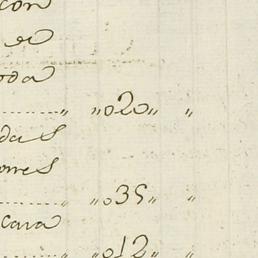 con
de
oda
........„ „020„ „
das
ones
........„ „035„ „
cara
........„ „012„ „